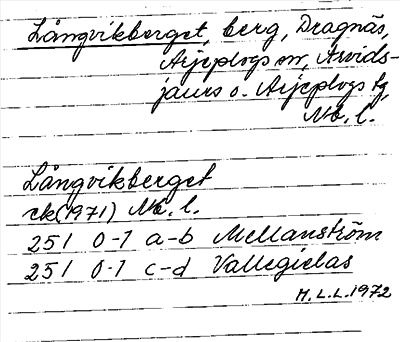 Långvikberget, berg, Dragnäs,
Arjeplogs sn, Arvids-
jaurs o. Arjeplogs tg,
Nb. l.
Långvikberget
ek(1971) Nb. l.
25I 0-1 a-b Mellanström
25I 0-1 c-d Vallegielas
H.L.L. 1972